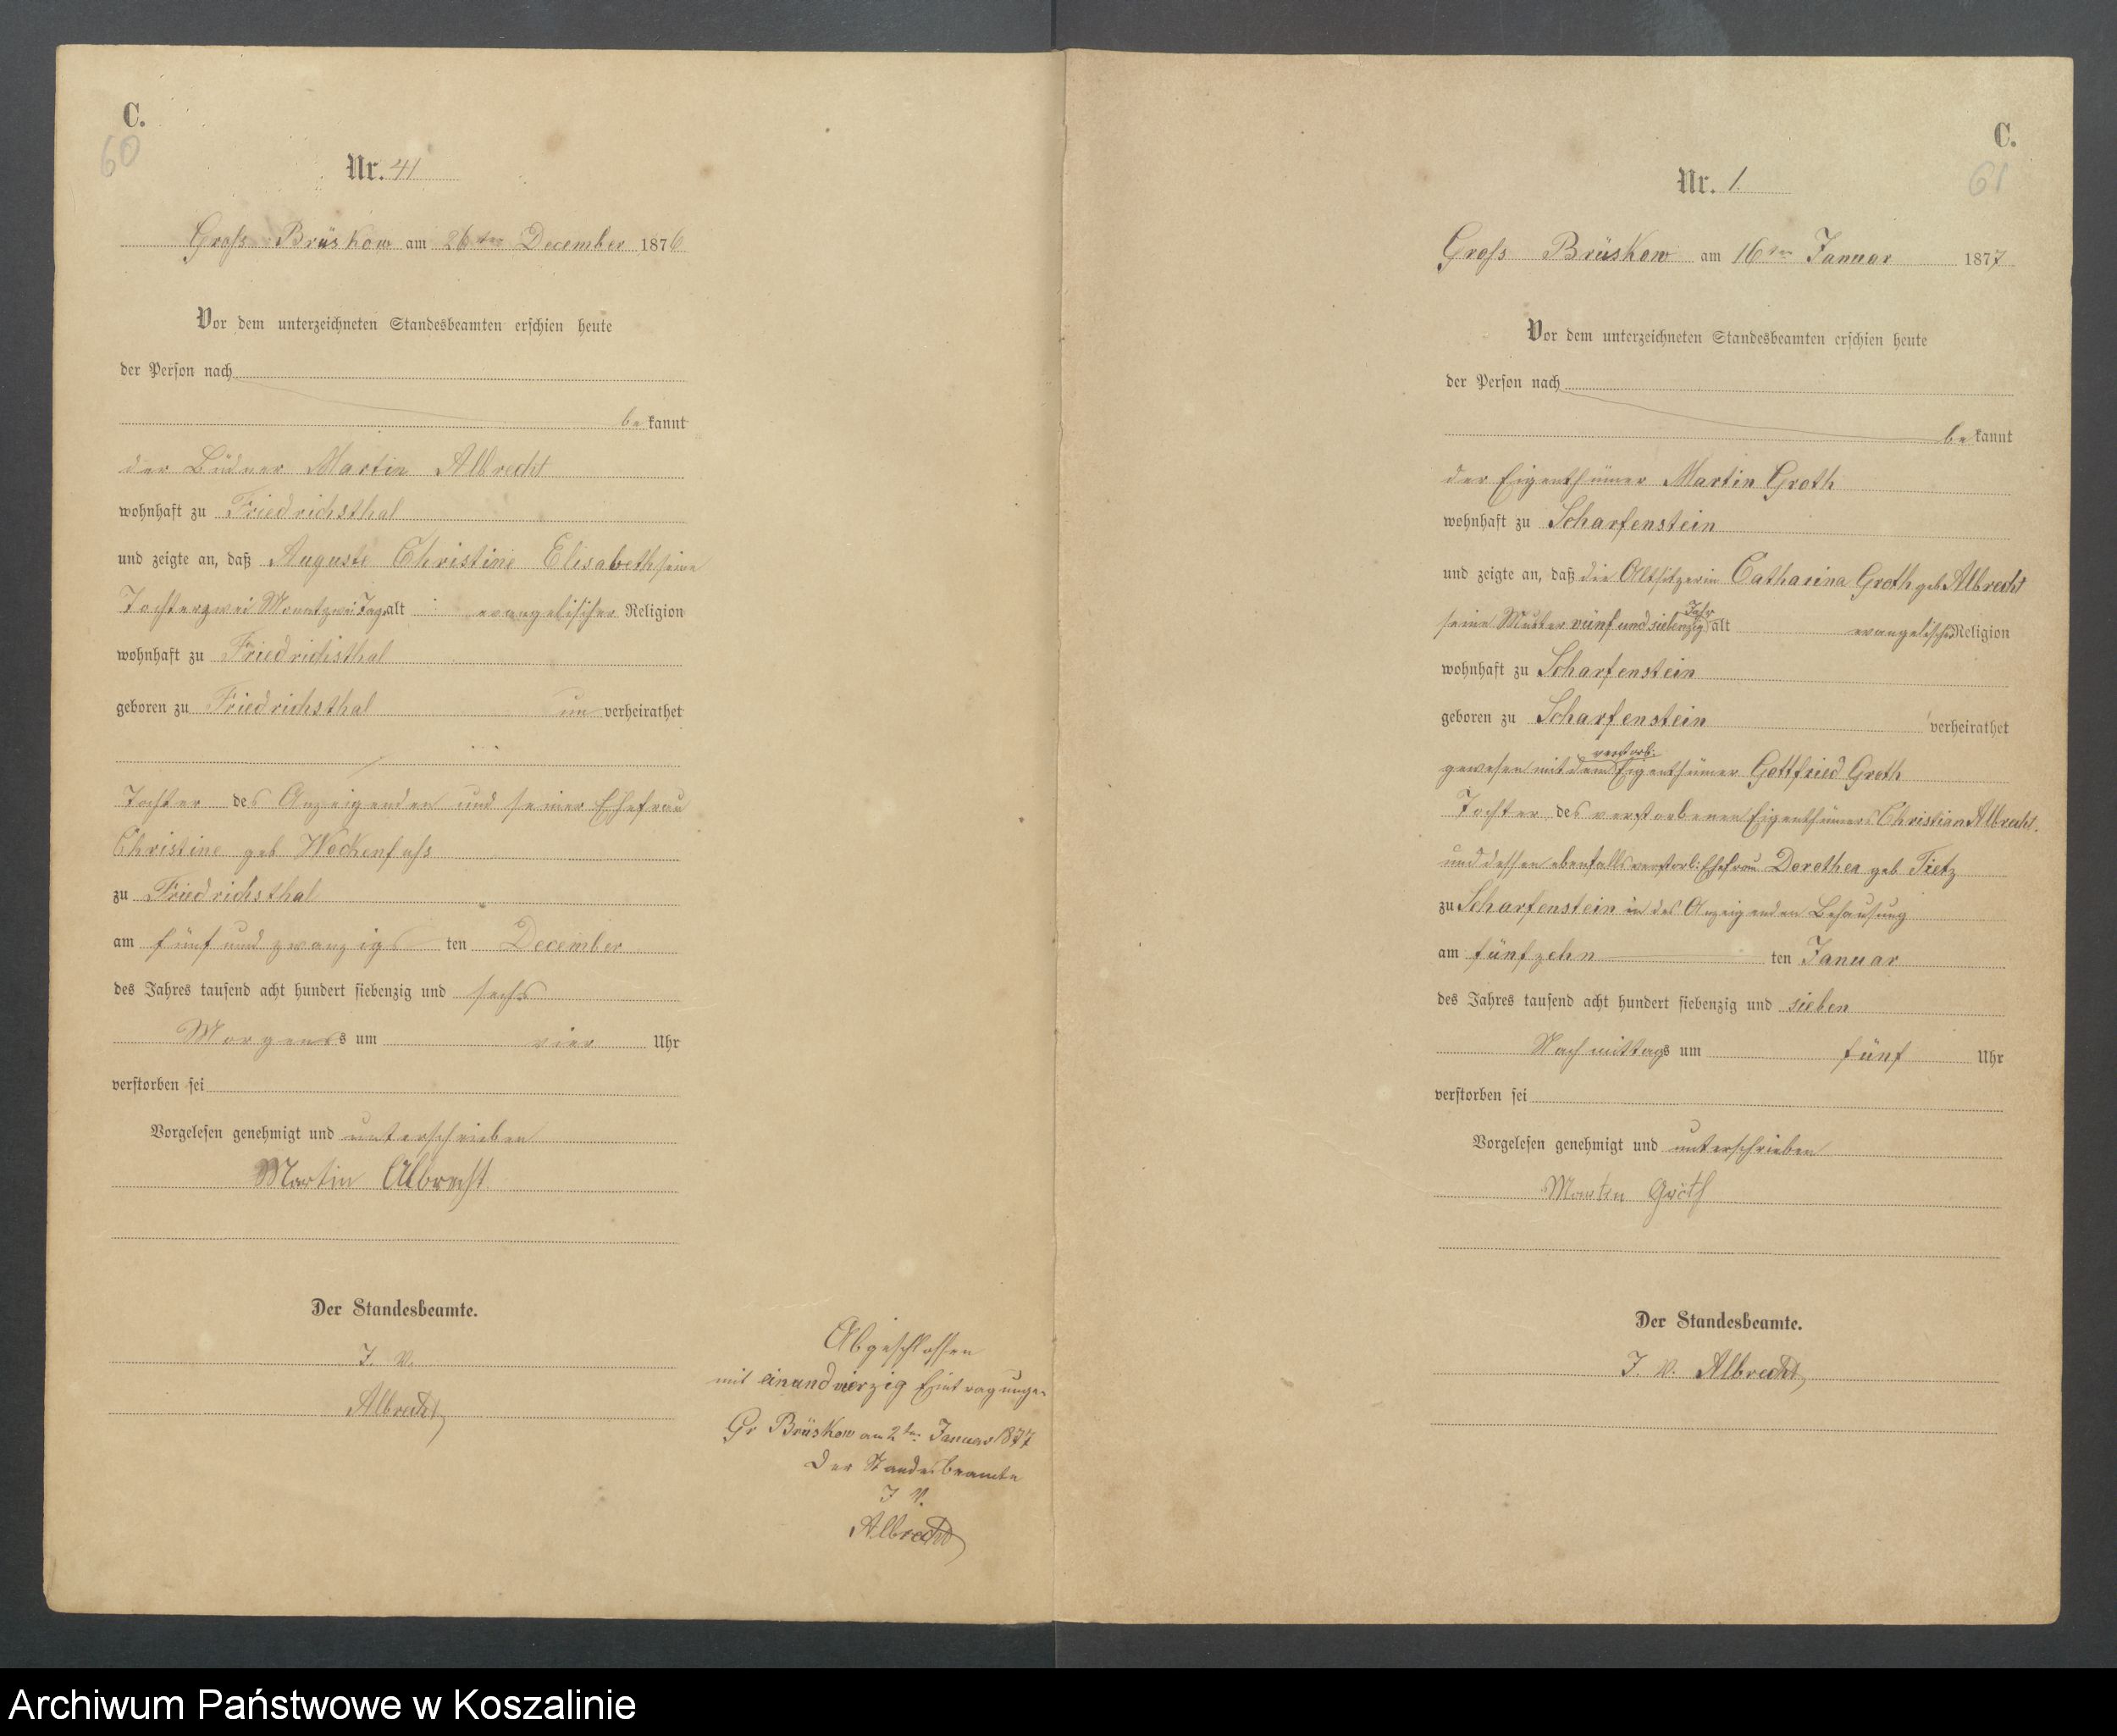 C.
60
Nr. 41
Gross Brüskow am 26ten December 1876
Vor dem unterzeichneten Standesbeamten erschien heute
der Person nach
be kannt
der Büdner Martin Albrecht
wohnhaft zu Friedrichsthal
und zeigte an, daß Auguste Christine Elisabeth seine
Tochter zwei Monat zwei Tage alt evangelischer Religion
wohnhaft zu Friedrichsthal
geboren zu Friedrichsthal un verheirathet
Tochter des Anzeigenden und seiner Ehefrau
Christine geb Wockenfuss
zu Friedrichsthal
am fünf und zwanzigs ten December
des Jahres tausend acht hundert siebenzig und sechs
Morgens um vier Uhr
verstorben sei
Vorgelesen genehmigt und unterschrieben
Martin Albrecht
Der Standesbeamte.
I. V.
Albrecht
Abgeschlossen
mit einundvierzig Eintragungen
Gr Brüskow am 2ten Januar 1877
Der Standesbeamte
I V.
Albrecht
C.
61
Nr. 1.
Gross Brüskow am 16ten Januar 1877
Vor dem unterzeichneten Standesbeamten erschien heute
der Person nach
be kannt
der Eigenthümer Martin Groth
wohnhaft zu Scharfenstein
und zeigte an, daß die Altsitzerin Catharina Groth geb Albrecht
seine Mutter vünf und siebenzig Jahr alt evangelischer Religion
wohnhaft zu Scharfenstein
geboren zu Scharfenstein verheirathet
gewesen mit dem verstorb: Eigenthümer Gottfried Groth
Tochter des verstorbenen Eigenthümers Christian Albrecht.
und dessen ebenfalls verstorb: Ehefrau Dorothea geb Tietz
zu Scharfenstein in des Anzeigenden Behausung
am fünfzehn ten Januar
des Jahres tausend acht hundert siebenzig und sieben
Nachmittags um fünf Uhr
verstorben sei
Vorgelesen genehmigt und unterschrieben
Martin Groth
Der Standesbeamte.
I V. Albrecht
Archiwum Państwowe w Koszalinie